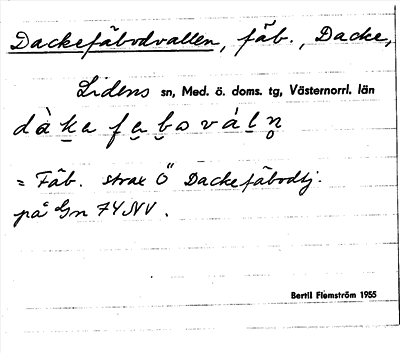 Dackefäbodvallen, fäb., Dacke,
Lidens sn, Med. ö. doms. tg, Västernorrl. län
dàka fabovál̥n̥
= Fäb. strax Ö Dackefäbodtj.
på Gn 74 NV.
Bertil Flemström 1955